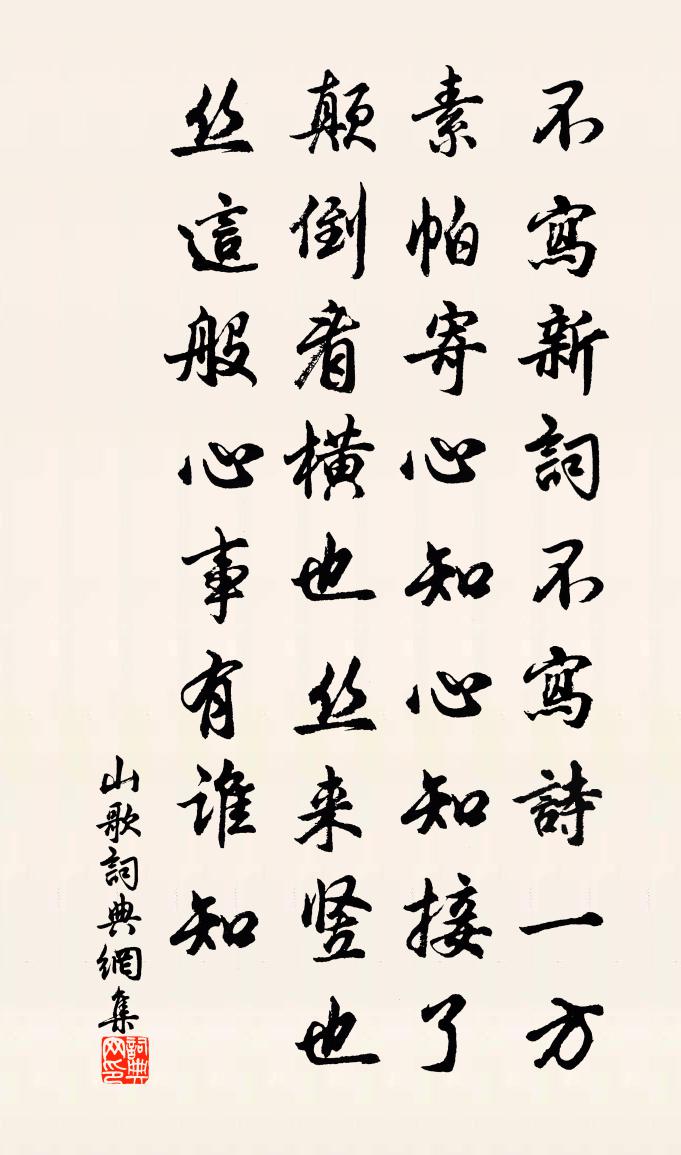 不寫新詞不寫詩一方
素帕寄心知心知接了
顛倒看橫也丝来竖也
丝這般心事有谁知
山歌詞典網集
詞典网印